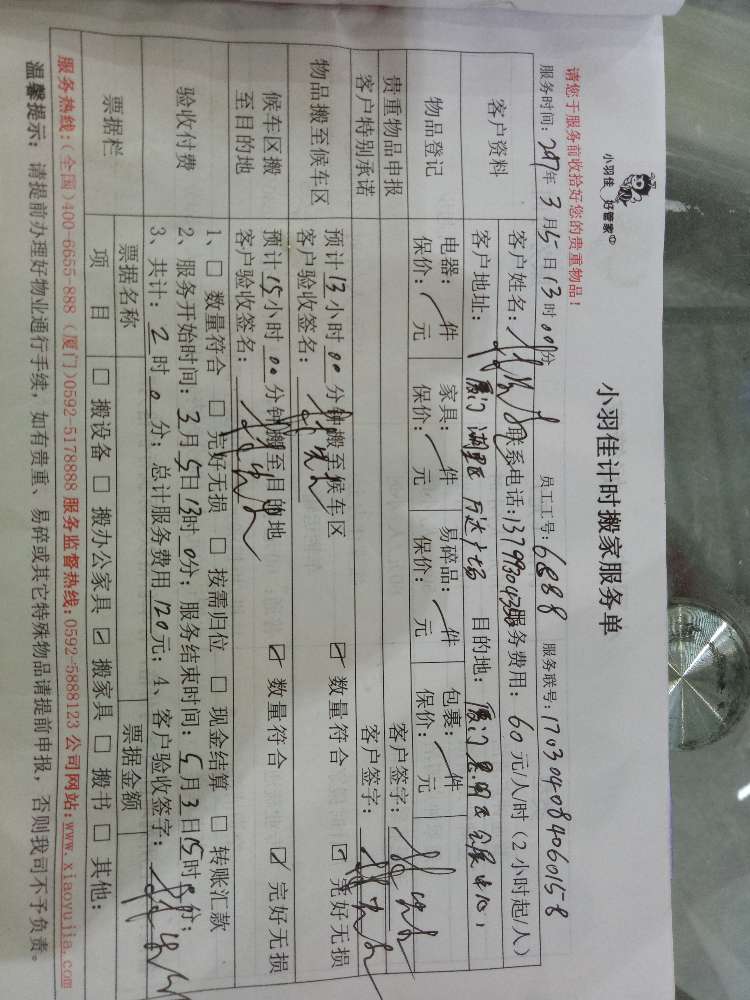 小羽佳 好管家
小羽佳计时搬家服务单
请您于服务前收拾好您的贵重物品！
服务时间：2017年3月5日13时00分 员工工号：6888 服务联号：17030408406015-8
客户资料
客户姓名： 联系电话：服务费用：60元/人/时（2小时起/人）
客户地址：厦门湖里区万达广场 目的地：厦门思明区会展中心
物品登记
电器： 件 家具： 件 易碎品： 件 包裹： 件
保价： 元 保价： 元 保价： 元 保价： 元
贵重物品申报 客户签字：
客户特别承诺 客户签字：
物品搬至候车区
预计13小时00分钟搬至候车区 ☑ 数量符合 ☑ 完好无损
客户验收签名：
候车区搬至目的地
预计15小时00分钟搬至目的地 ☑ 数量符合 ☑ 完好无损
客户验收签名：
验收付费
1、□ 数量符合 □ 完好无损 □ 按需归位 □ 现金结算 □ 转账汇款
2、服务开始时间：3月5日13时0分；服务结束时间：5月3日15时0分；
3、共计：2时0分；总计服务费用120元；4、客户验收签字：
票据栏
票据名称 票据金额
项 目 □ 搬设备 □ 搬办公家具 ☑ 搬家具 □ 搬书 □ 其他：
服务热线：(全国)400-6655-888 (厦门)0592-5178888 服务监督热线：0592-5888123 公司网站：www.xiaoyujia.com
温馨提示：请提前办理好物业通行手续，如有贵重、易碎或其它特殊物品请提前申报，否则我司不予负责。